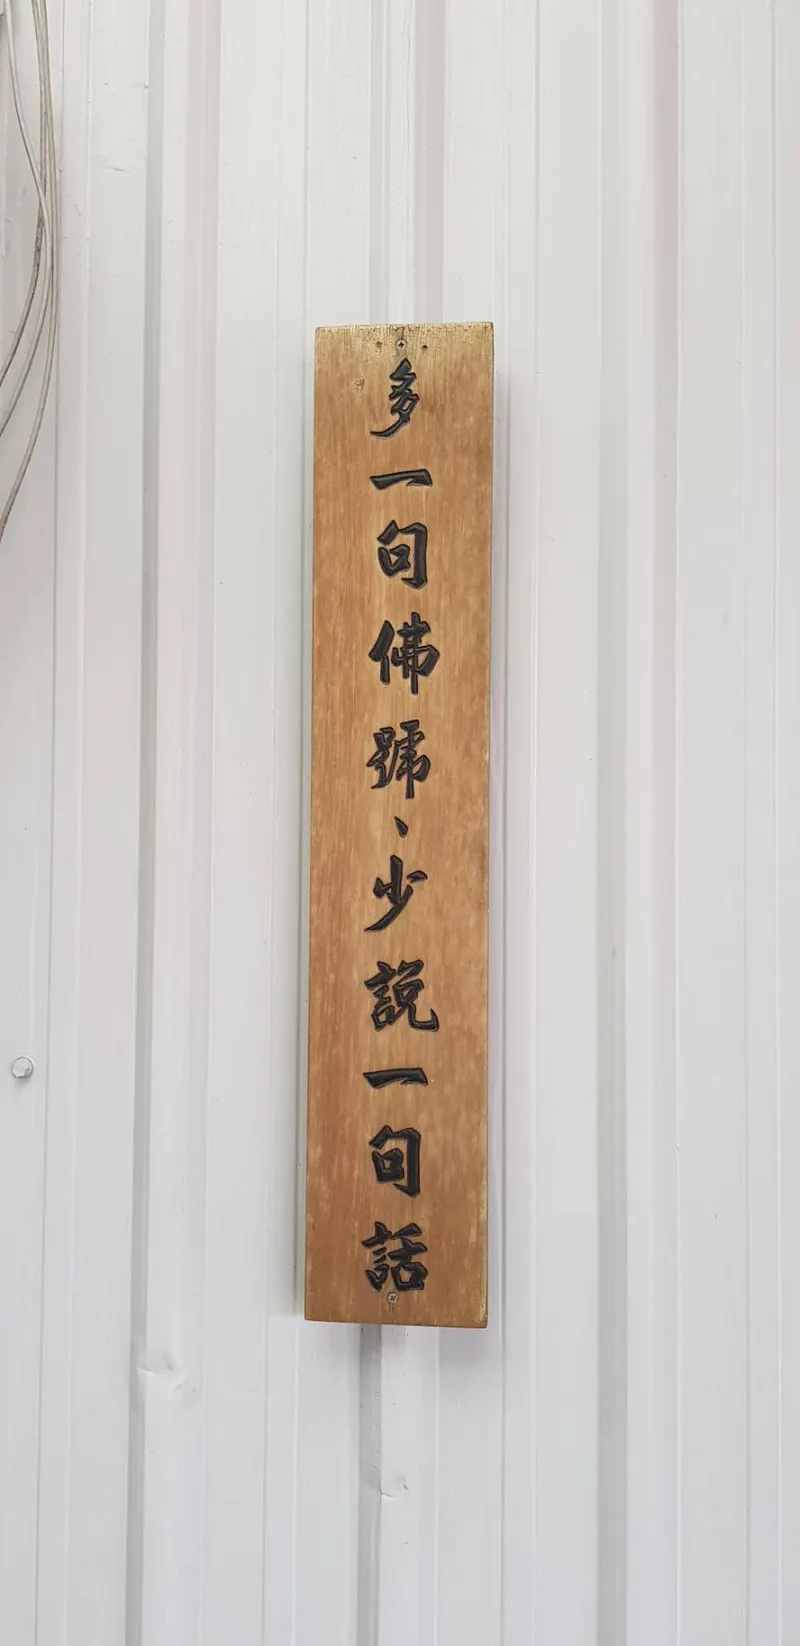 多一句佛號、少說一句話